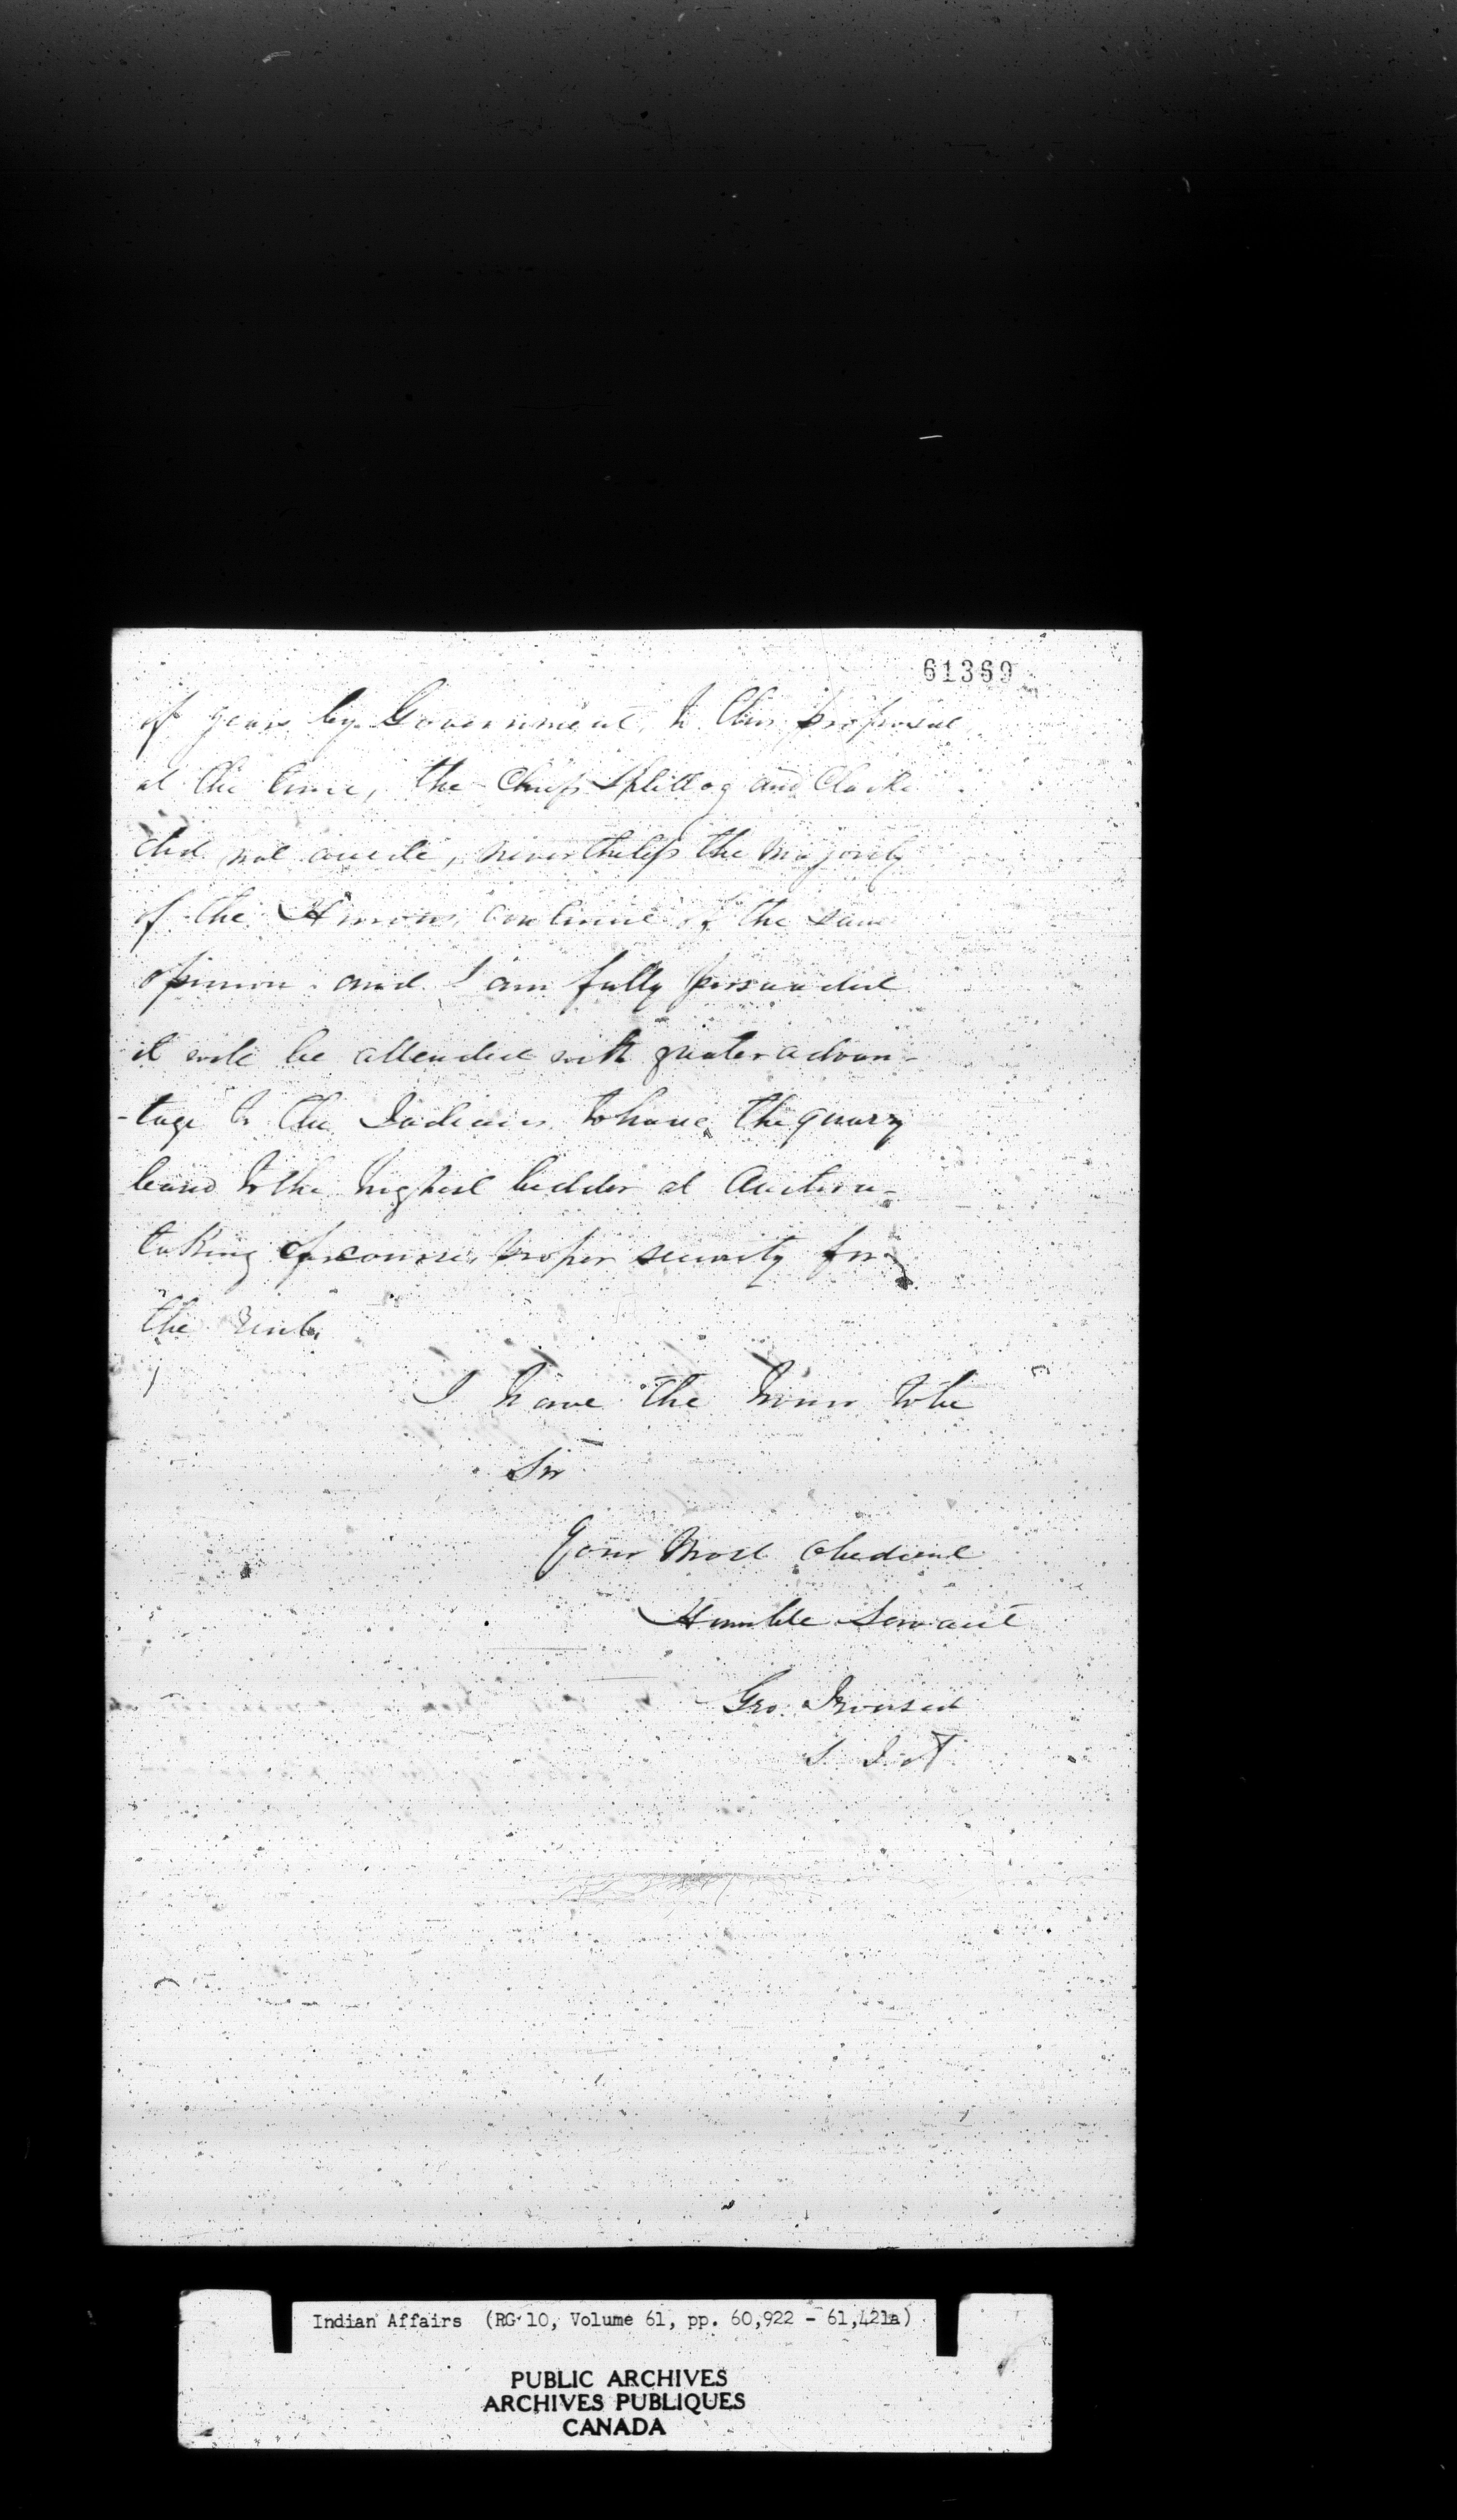 61369
of years by Government, to this proposal
at the time, the Chiefs Splitlog and Clarke
did not accede, nevertheless the majority
of the Hurons, continue of the same
opinion and I am fully persuaded
it will be attended with greater advan-
-tage to the Indians to have the quarry
leased to the highest bidder at Auction-
taking of course, proper security for
the rent.
I have the honor to be
Sir
Your Most Obedient
Humble Servant
Geo. Ironside
S. I. A
Indian Affairs (RG 10, Volume 61, pp. 60,922 - 61,421a)
PUBLIC ARCHIVES
ARCHIVES PUBLIQUES
CANADA